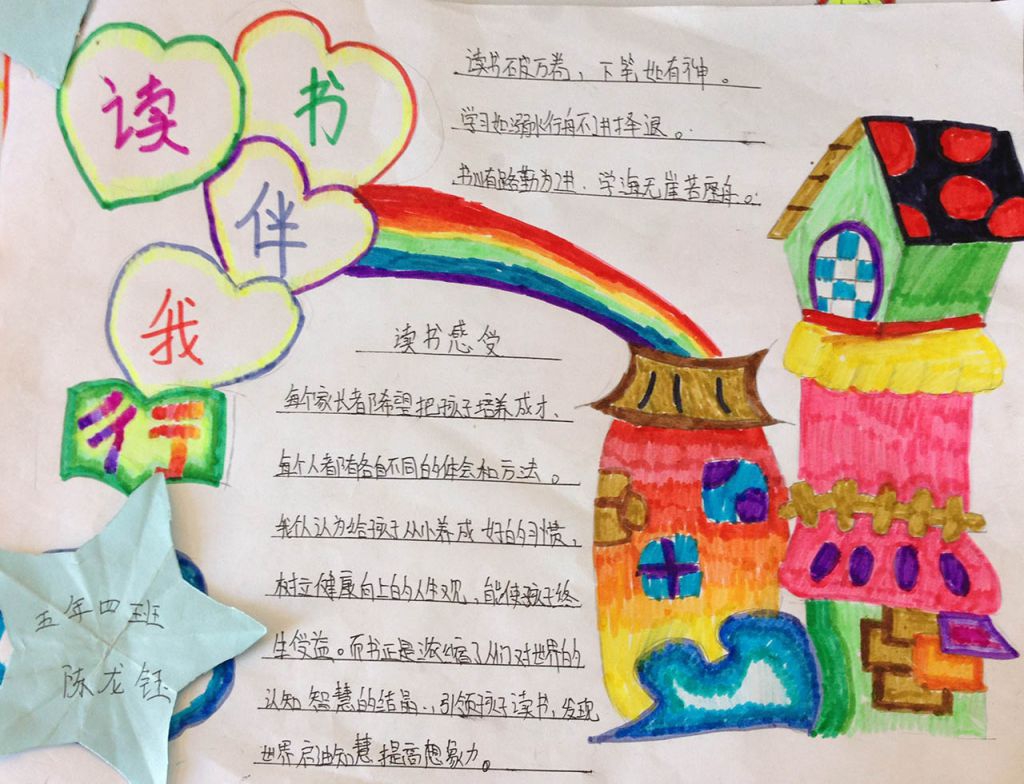 读书
伴
我
行
读书破万卷，下笔如有神。
学习如溺水行舟不择退。
书山有路勤为，学海无崖苦座舟。
读书感受
每个家长都希望把孩子培养成才、
每个人都有各自不同的体会和方法。
我认为给孩子从小养成好的习惯，
树立健康向上的人生观、能使孩子终
生受益。而书正是浓缩了人们对世界的
认知智慧的结晶.，引领孩子读书，发现
世界启迪知慧提高想象力。
五年四班
陈龙钰